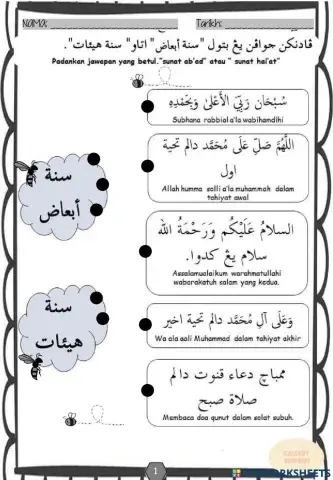 NAMA: Tarikh:
ڤادنكن جواڤن يڠ بتول "سنة أبعاض" اتاو" سنة هيئات".
Padankan jawapan yang betul."sunat ab'ad" atau " sunat hai'at"
سُبْحَان رَبِّيَ الأَعْلَىٰ وَبِحَمْدِهِ
Subhana rabbial a'la wabihamdihi
اللَّهُمَّ صَلِّ عَلَى مُحَمَّد دالم تحية
اول
Allah humma solli a'la muhammah dalam
tahiyat awal
سنة
أبعاض
السلامُ عَلَيْكُم وَرَحْمَةُ الله
سلام يڠ كدوا.
Assalamualaikum warahmatullahi
wabarakatuh salam yang kedua.
سنة
هيئات
وَعَلَى آلِ مُحَمَّد دالم تحية اخير
Wa ala aali Muhammad dalam tahiyat akhir
ممباچ دعاء قنوت دالم
صلاة صبح
Membaca doa qunut dalam solat subuh.
1